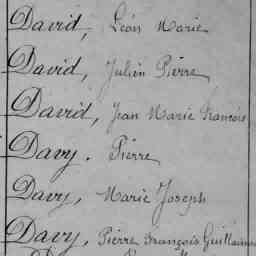 David, Léon Marie
David, Julien Pierre
David, Jean Marie François
Davy. Pierre
Davy, Marie Joseph
Davy, Pierre François Guillaume